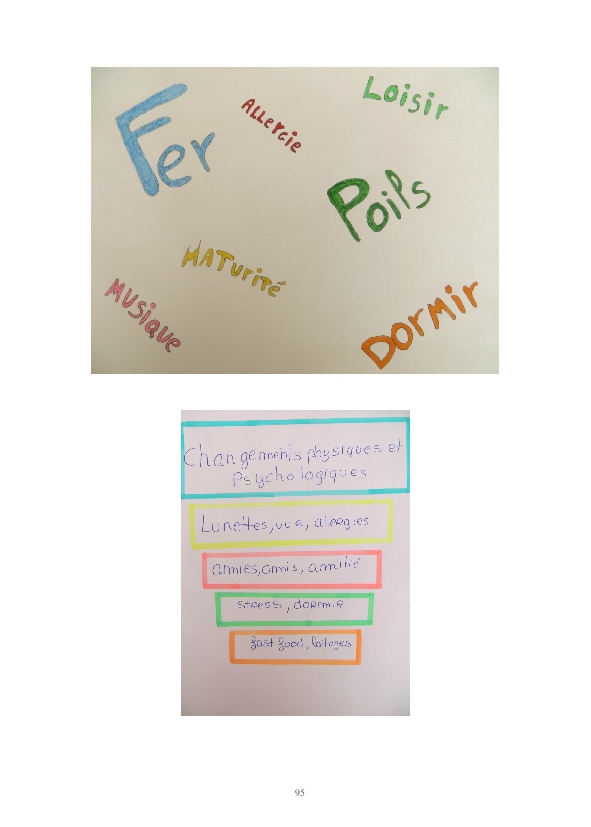 Fer
ALLErciE
Loisir
Poils
MATurité
MUSique
DORMir
Changements physiques et
Psychologiques
Lunettes, vue, alergies
amies, amis, amitié
stress, dormir
fast food, laitages
95